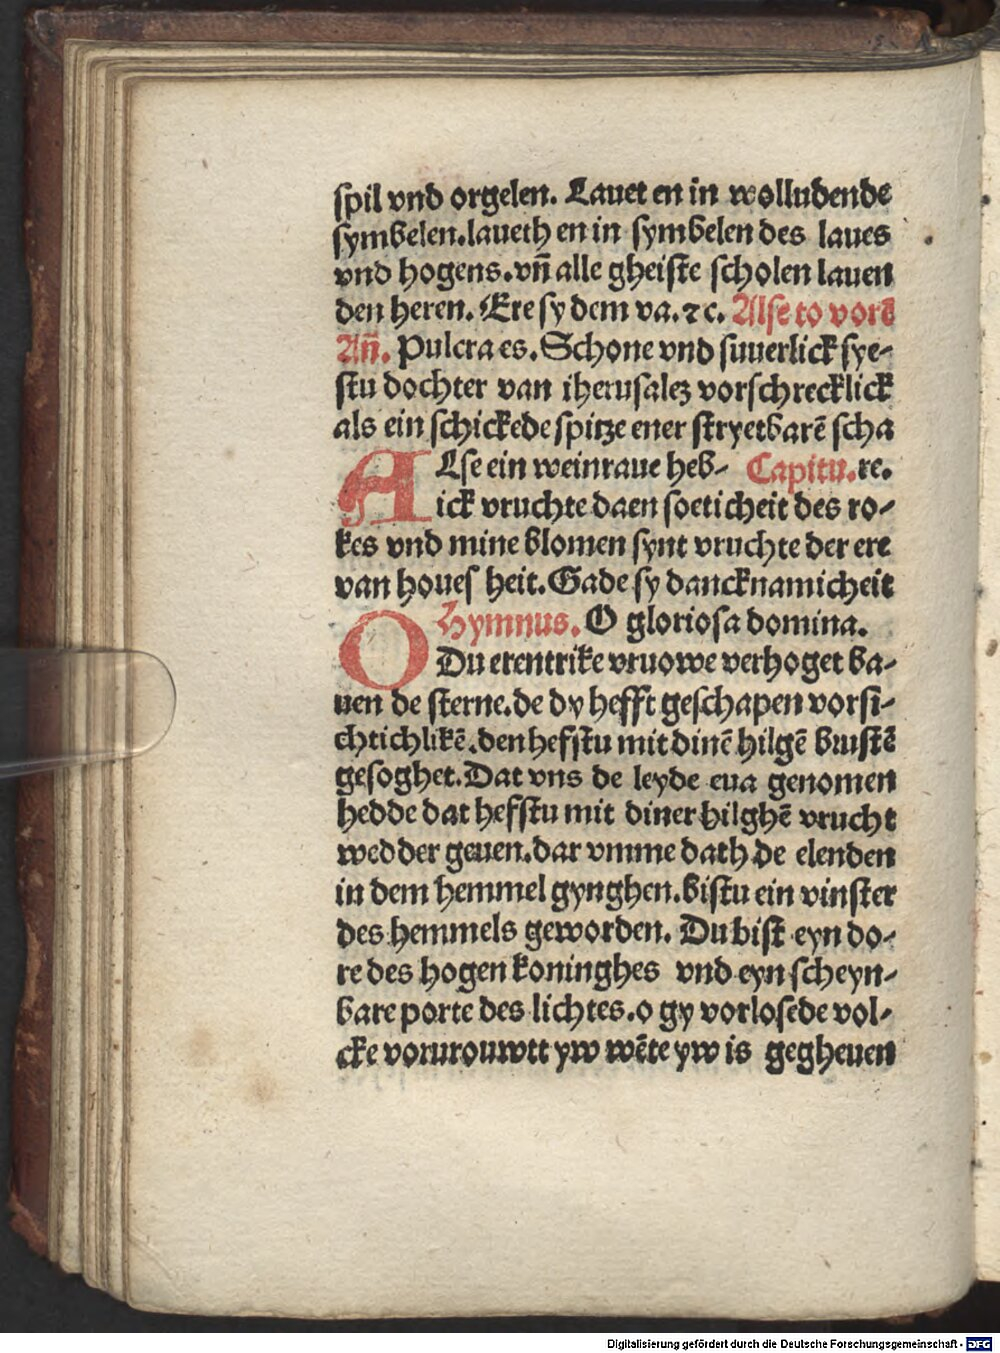 spil vnd orgelen. Lauet en in wolludende
symbelen.laueth en in symbelen des laues
vnd hogens.vn̄ alle gheiste scholen lauen
den heren. Ere sy dem va.⁊c. Alse to vorē
An̄. Pulcra es. Schone vnd suuerlick sye⸗
stu dochter van iherusalez vorschrecklick
als ein schickede spitze ener stryetbarē scha
ALse ein weinraue heb⸗ Capitu.re.
ick vruchte daen soeticheit des ro⸗
kes vnd mine blomen synt vruchte der ere
van houes heit. Gade sy dancknamicheit
Hymnus. O gloriosa domina.
ODu erentrike vruowe verhoget ba⸗
uen de sterne.de dy hefft geschapen vorsi⸗
chtichlikē.den hefstu mit dinē hilgē brustē
gesoghet. Dat vns de leyde eua genomen
hedde dat hefstu mit diner hilghē vrucht
wedder geuen.dar vmme dath de elenden
in dem hemmel gynghen.bistu ein vinster
des hemmels geworden. Du bist eyn do⸗
re des hogen koninghes vnd eyn scheyn⸗
bare porte des lichtes.o gy vorlosede vol⸗
cke vorurouwtt yw wēte yw is gegheuen
Digitalisierung gefördert durch die Deutsche Forschungsgemeinschaft - DFG